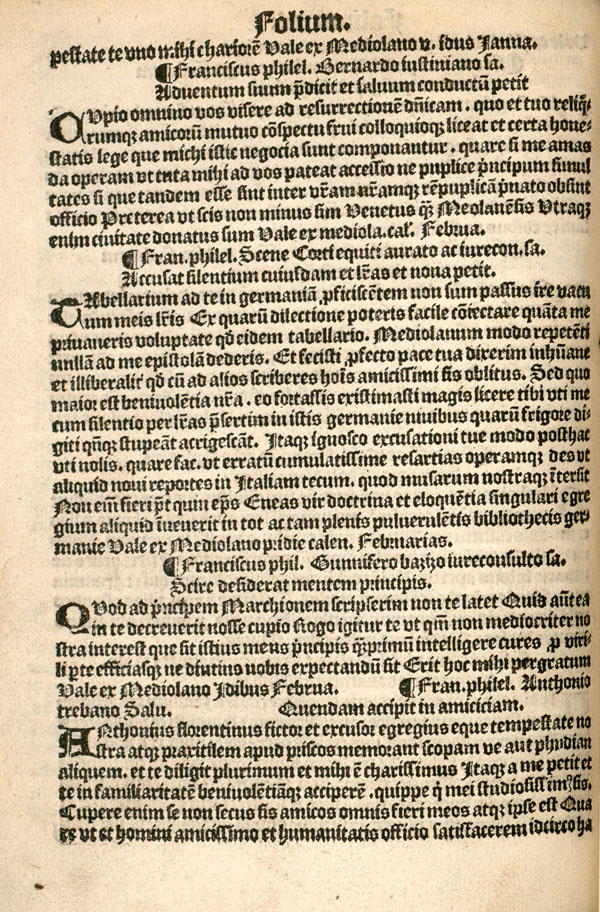 Folium.
pestate te vno mihi chariorē Vale ex Mediolano v. idus Janna.
¶Franciscus philel. Bernardo iustiniano sa.
Aduentum suum p̄dicit et saluum conductū petit
CVpio omnino vos visere ad resurrectionē dn̄icam. quo et tuo reliq̄
rumqꝫ amicorū mutuo cōspectu frui colloquioqꝫ liceat et certa hone-
statis lege que michi istic negocia sunt componantur. quare si me amas
da operam vt tuta mihi ad vos pateat accessio ne puplice p̄ncipum simul
tates si que tandem esse sint inter vr̄am nr̄amqꝫ rēpuplicā p̄uato obsint
officio Preterea vt scis non minus sim Venetus qꝫ̄ Meolanēsis Vtraqꝫ
enim ciuitate donatus sum Vale ex mediola. cal'. Februa.
¶Fran. philel. Scene Corti equiti aurato ac iurecon. sa.
Accusat silentium cuiusdam et lr̄as et noua petit.
TAbellarium ad te in germaniā ꝓficiscētem non sum passus ire vacu
um meis lr̄is Ex quarū dilectione poteris facile cōiectare quāta me
priuaueris voluptate qd̄ eidem tabellario. Mediolanum modo repetēti
nullā ad me epistolā dederis. Et fecisti ꝓfecto pace tua dixerim inhūane
et illiberalit̄ qd̄ cū ad alios scriberes hoīs amicissimi sis oblitus. Sed quo
maior est beniuolētia nr̄a. eo fortassis existimasti magis licere tibi vti me
cum silentio per lr̄as p̄sertim in istis germanie niuibus quarū frigore di-
giti qn̄qꝫ stupeāt acrigescāt. Itaqꝫ ignosco excusationi tue modo posthac
vti nolis. quare fac. vt erratū cumulatissime resartias operamqꝫ des vt
aliquid noui reportes in Italiam tecum. quod musarum nostraqꝫ īterfit
Non eīm fieri p̄t quin ep̄s Eneas vir doctrina et eloquētia singulari egre
gium aliquid īuenerit in tot ac tam plenis puluerulētis bibliothecis ger-
manie Vale ex Mediolano pridie calen. Februarias.
¶Franciscus phil. Gunnifero bazizo iureconsulto sa.
Scire desiderat mentem principis.
QVod ad p̄ncipem Marchionem scripserim non te latet Quid aūt ea
in te decreuerit nosse cupio Rogo igitur te vt qm̄ non mediocriter no
stra interest que sit istius mens p̄ncipis qꝫ̄primū intelligere cures ꝓ viri-
li ꝑte efficiasqꝫ ne diutius nobis expectandū sit Erit hoc mihi pergratum
Vale ex Mediolano Idibus Februa. ¶Fran. philel. Anthonio
trebano Salu. Quendam accipit in amiciciam.
ANthonius florentinus fictor et excusor egregius eque tempestate no
stra atqꝫ praxitilem apud priscos memorant scopam ve aut phydian
aliquem. et te diligit plurimum et mihi ē charissimus Itaqꝫ a me petit et
te in familiaritatē beniuolētiāqꝫ acciperē. quippe q̄ mei studiosissim⁹ sis.
Cupere enim se non secus sis amicos omnis fieri meos atqꝫ ipse est Qua
re vt et homini amicissimo et humanitatis officio satisfacerem idcirco ha